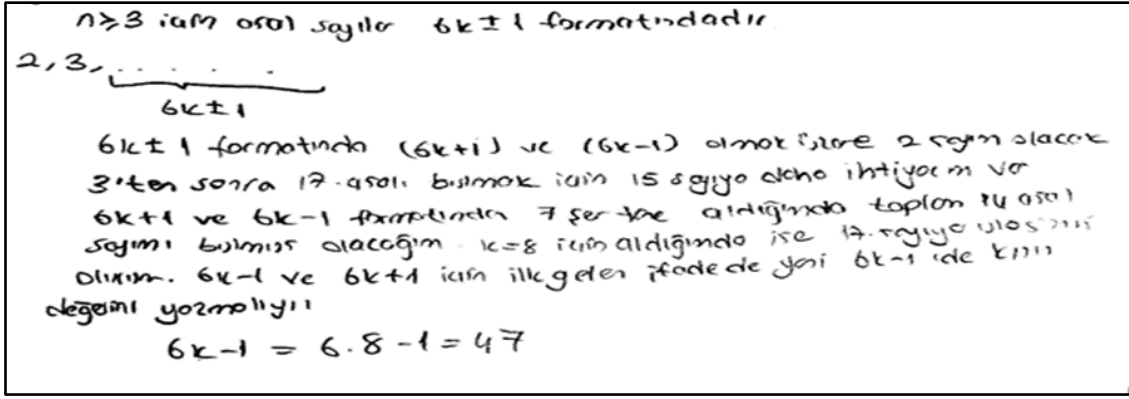 n≥3 için asal sayılar 6k±1 formatındadır
2,3, . . . . .
6k±1
6k±1 formatında (6k+1) ve (6k-1) olmak üzere 2 sayım olacak
3'ten sonra 17. asalı bulmak için 15 sayıya daha ihtiyacım var
6k+1 ve 6k-1 formatından 7 şer tane aldığımda toplam 14 asal
sayımı bulmuş olacağım. k=8 için aldığımda ise 17. sayıya ulaşmış
olurum. 6k-1 ve 6k+1 için ilk gelen ifadede yani 6k-1 'de k'nın
değerini yazmalıyım
6k-1 = 6.8-1=47